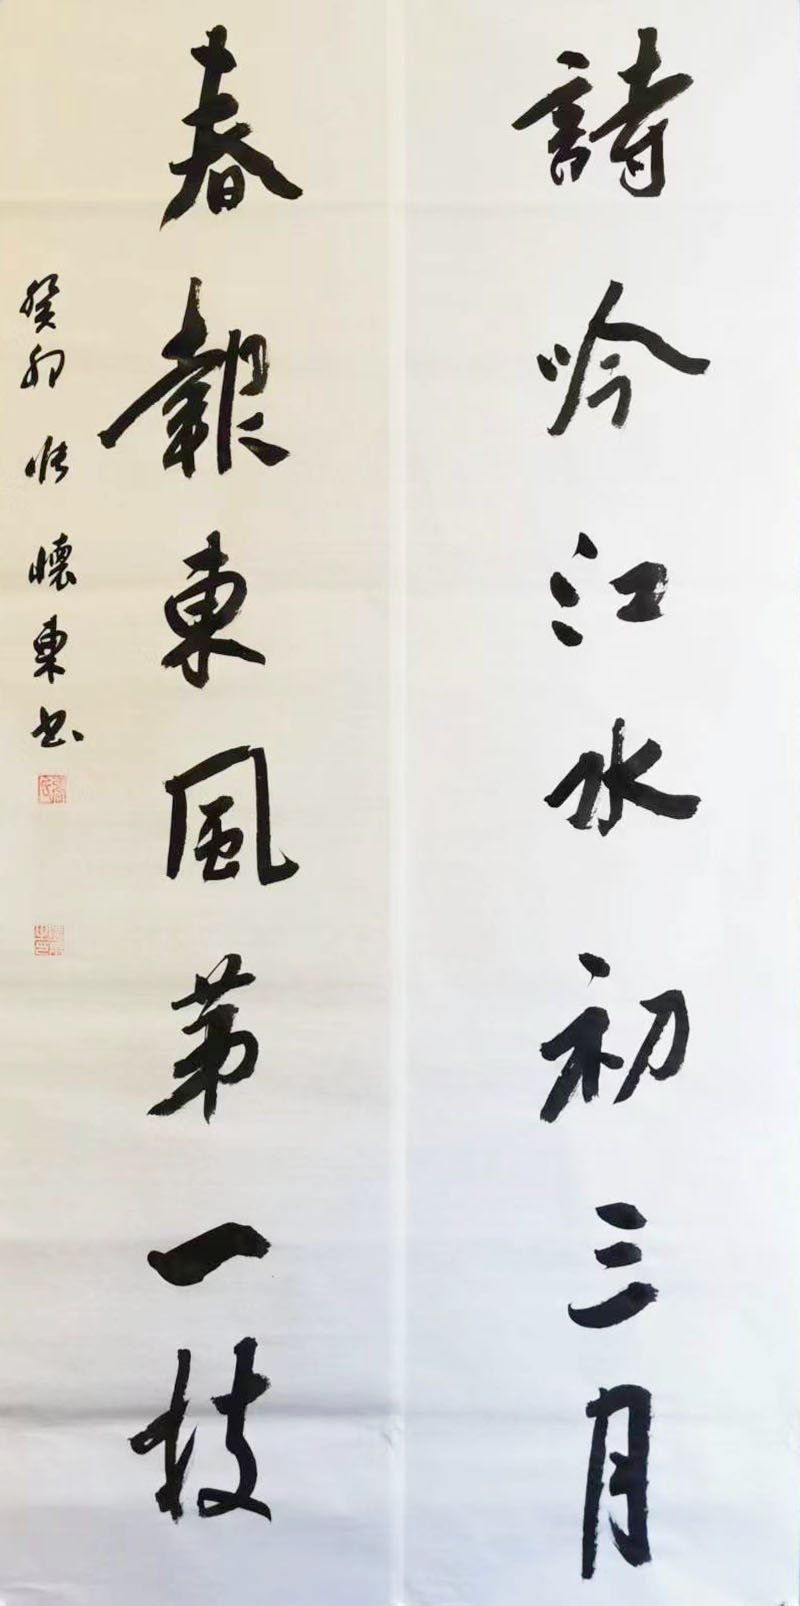 詩吟江水初三月
春報東風第一枝
癸卯 懷東书